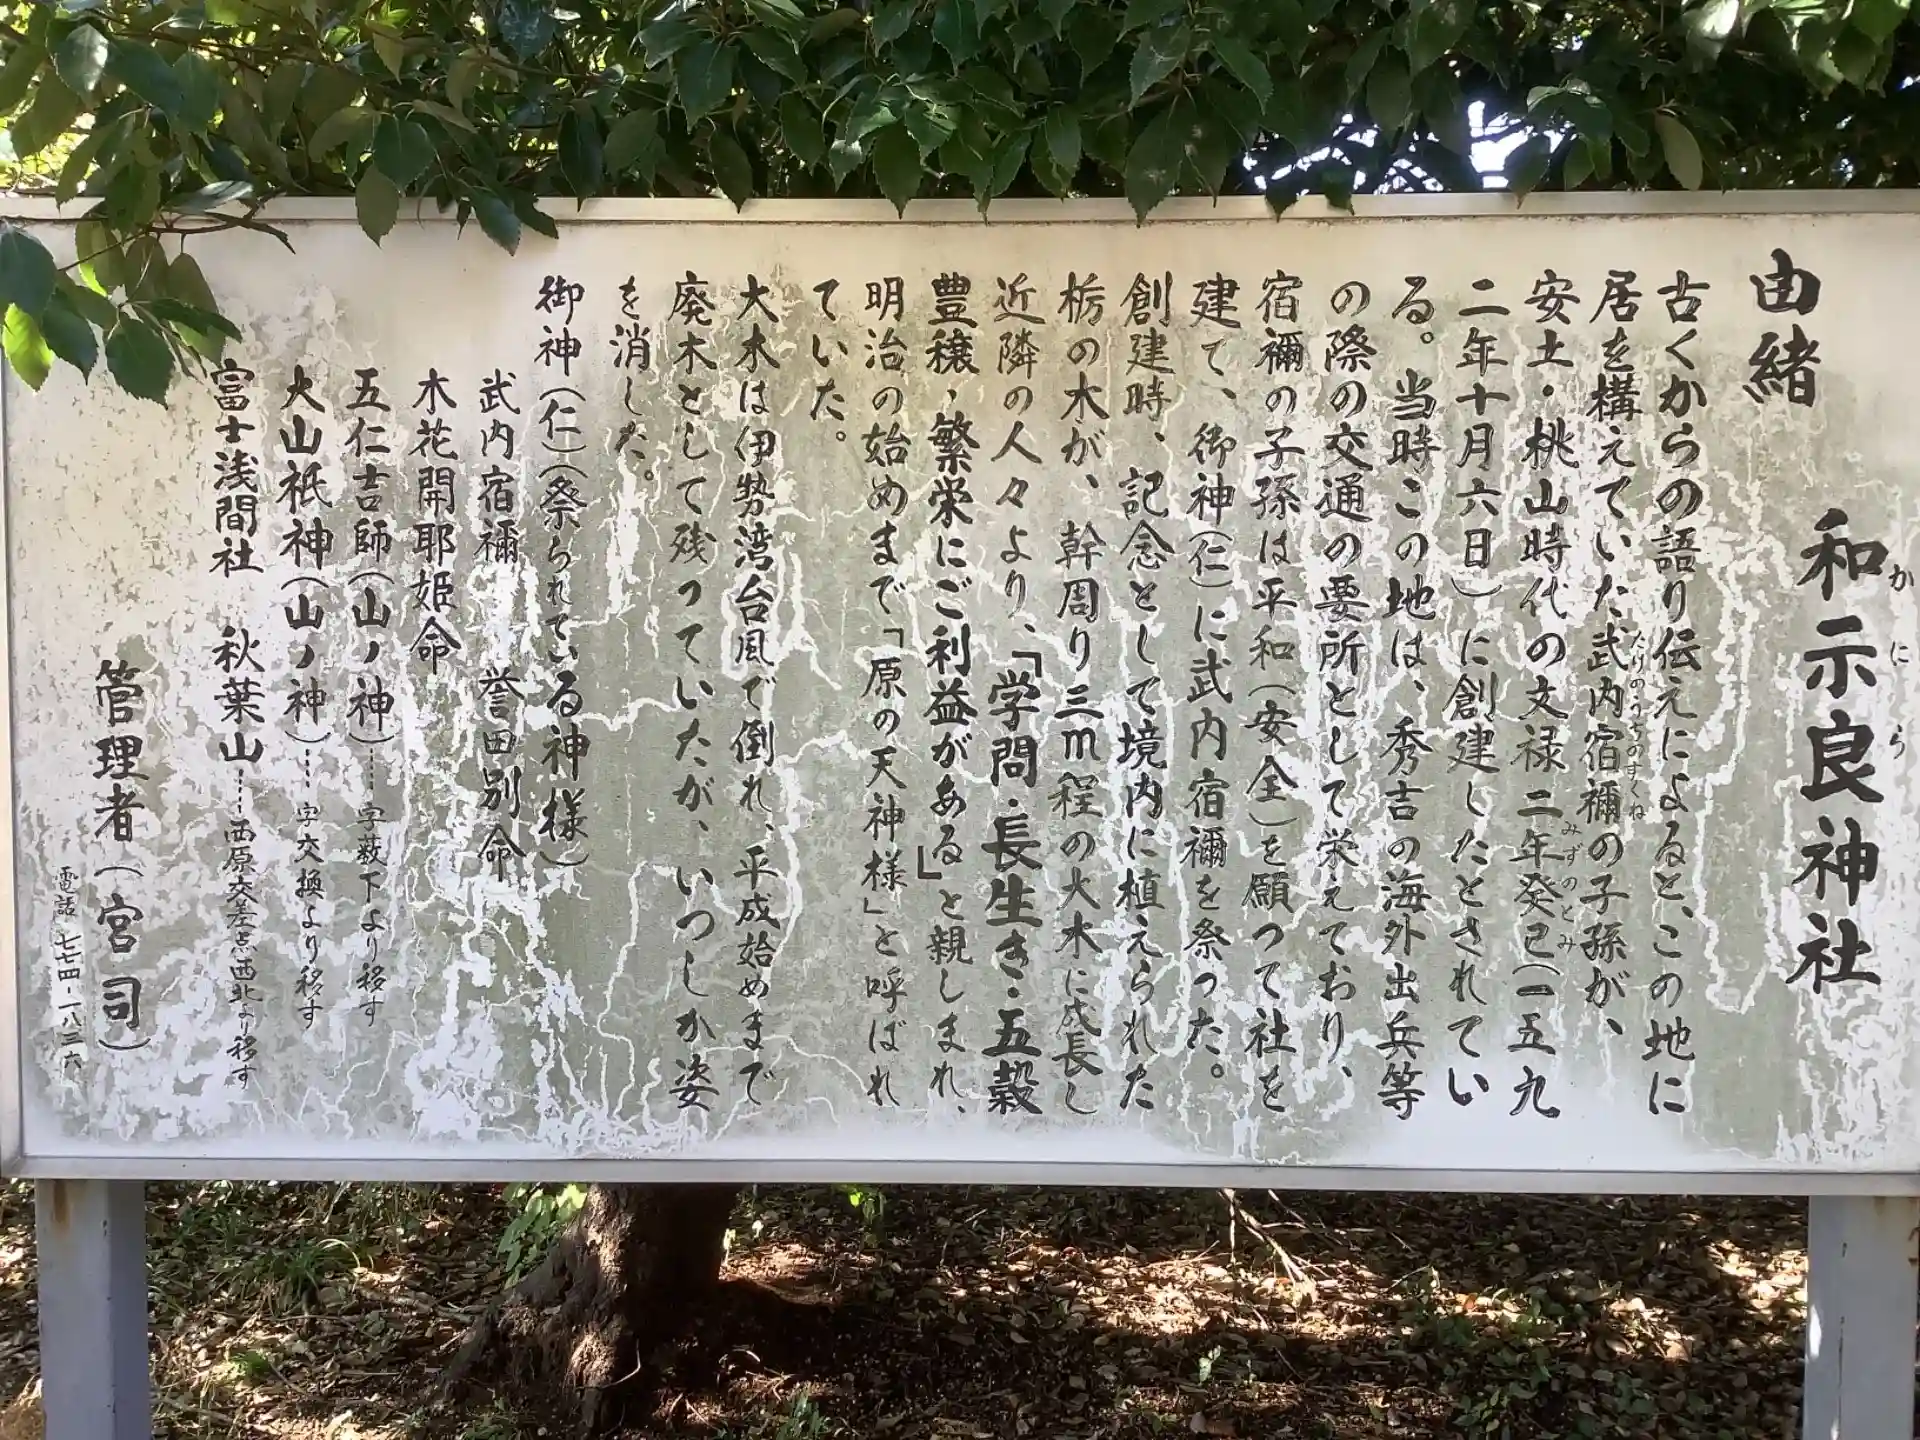 和示良神社
かにら
由緒
古くからの語り伝えによると、この地に
居を構えていた武内宿禰の子孫が、
たけのうちのすくね
安土・桃山時代の文禄二年癸己(一五九
みずのとみ
二年十月六日)に創建したとされてい
る。当時この地は、秀吉の海外出兵等
の際の交通の要所として栄えており、
宿禰の子孫は平和(安全)を願って社を
建て、御神(仁)に武内宿禰を祭った。
創建時、記念として境内に植えられた
栃の木が、幹周り三m程の大木に成長し
近隣の人々より、「学問・長生き・五穀
豊穣・繁栄にご利益がある」と親しまれ、
明治の始めまで「原の天神様」と呼ばれ
ていた。
大木は伊勢湾台風で倒れ、平成始めまで
廃木として残っていたが、いつしか姿
を消した。
御神(仁)(祭られている神様)
武内宿禰 誉田別命
木花開耶姫命
五仁吉師(山ノ神)……字薮下より移す
大山祇神(山ノ神)……字交換より移す
富士浅間社 秋葉山……西原交差点西北より移す
管理者(宮司)
電話 七七四-一八三六